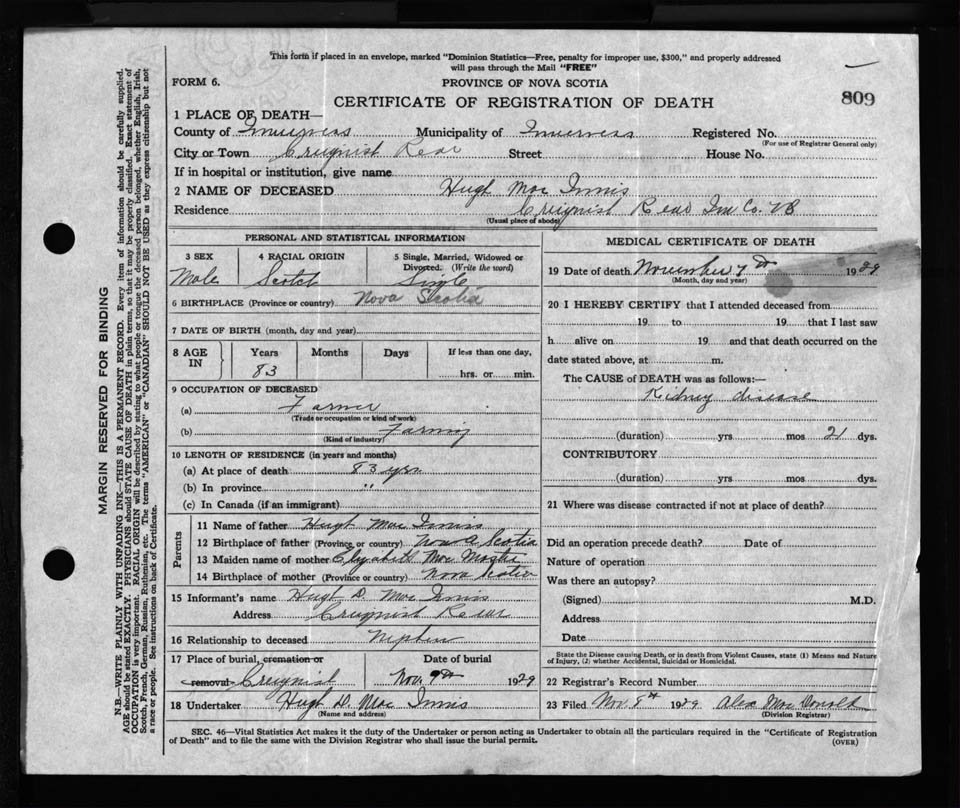 This form if placed in an envelope, marked "Dominion Statistics—Free, penalty for improper use, $300," and properly addressed
will pass through the Mail "FREE"
FORM 6.
PROVINCE OF NOVA SCOTIA
CERTIFICATE OF REGISTRATION OF DEATH
809
1 PLACE OF DEATH—
County of Inverness Municipality of Inverness Registered No.
(For use of Registrar General only)
City or Town Creignish Rear Street House No.
If in hospital or institution, give name
2 NAME OF DECEASED Hugh Mac Innis
Residence Creignish Rear Inv Co. CB
(Usual place of abode)
PERSONAL AND STATISTICAL INFORMATION
3 SEX 4 RACIAL ORIGIN 5 Single, Married, Widowed or
Divorced. (Write the word)
Male Scotch Single
6 BIRTHPLACE (Province or country) Nova Scotia
7 DATE OF BIRTH (month, day and year)
8 AGE IN Years Months Days If less than one day,
83 hrs. or min.
9 OCCUPATION OF DECEASED
(a) Farmer
(Trade or occupation or kind of work)
(b) Farming
(Kind of industry)
10 LENGTH OF RESIDENCE (in years and months)
(a) At place of death 83 yrs
(b) In province "
(c) In Canada (if an immigrant)
Parents
11 Name of father Hugh Mac Innis
12 Birthplace of father (Province or country) Nova Scotia
13 Maiden name of mother Elizabeth Mac Master
14 Birthplace of mother (Province or country) Nova Scotia
15 Informant's name Hugh D. Mac Innis
Address Creignish Rear
16 Relationship to deceased Nephew
17 Place of burial, cremation or Date of burial
removal Creignish Nov. 9th 1929
18 Undertaker Hugh D. Mac Innis
(Name and address)
MEDICAL CERTIFICATE OF DEATH
19 Date of death November 7th 1929
(Month, day and year)
20 I HEREBY CERTIFY that I attended deceased from
19 to 19 that I last saw
h alive on 19 and that death occurred on the
date stated above, at m.
The CAUSE OF DEATH was as follows:—
Kidney disease
(duration) yrs mos 21 dys.
CONTRIBUTORY
(duration) yrs. mos. dys.
21 Where was disease contracted if not at place of death?
Did an operation precede death? Date of
Nature of operation
Was there an autopsy?
(Signed) M.D.
Address
Date
State the Disease causing Death, or in death from Violent Causes, state (1) Means and Nature
of Injury, (2) whether Accidental, Suicidal or Homicidal.
22 Registrar's Record Number
23 Filed Nov. 8th 1929 Alex Mac Donald
(Division Registrar)
SEC. 46—Vital Statistics Act makes it the duty of the Undertaker or person acting as Undertaker to obtain all the particulars required in the "Certificate of Registration
of Death" and to file the same with the Division Registrar who shall issue the burial permit.
(OVER)
MARGIN RESERVED FOR BINDING
N.B.—WRITE PLAINLY WITH UNFADING INK—THIS IS A PERMANENT RECORD. Every item of information should be carefully supplied.
AGE should be stated EXACTLY. PHYSICIANS should STATE CAUSE OF DEATH in plain terms, so that it may be properly classified. Exact statement of
OCCUPATION is very important. RACIAL ORIGIN will be described by stating to what people or tongue the deceased person belonged, whether English, Irish,
Scotch, French, German, Russian, Ruthenian, etc. The terms "AMERICAN" or "CANADIAN" SHOULD NOT BE USED as they express citizenship but not
a race or people. See instructions on back of Certificate.